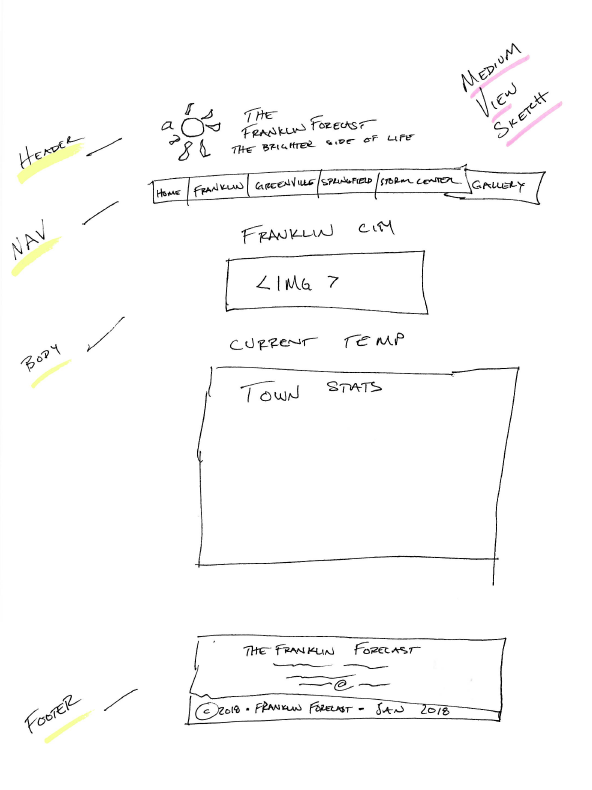 MEDIUM
VIEW
SKETCH
HEADER
THE
FRANKLIN FORECAST
THE BRIGHTER SIDE OF LIFE
NAV
HOME FRANKLIN GREENVILLE SPRINGFIELD STORM CENTER GALLERY
FRANKLIN CITY
<IMG>
BODY
CURRENT TEMP
TOWN STATS
FOOTER
THE FRANKLIN FORECAST
@
© 2018 • FRANKLIN FORECAST - JAN 2018